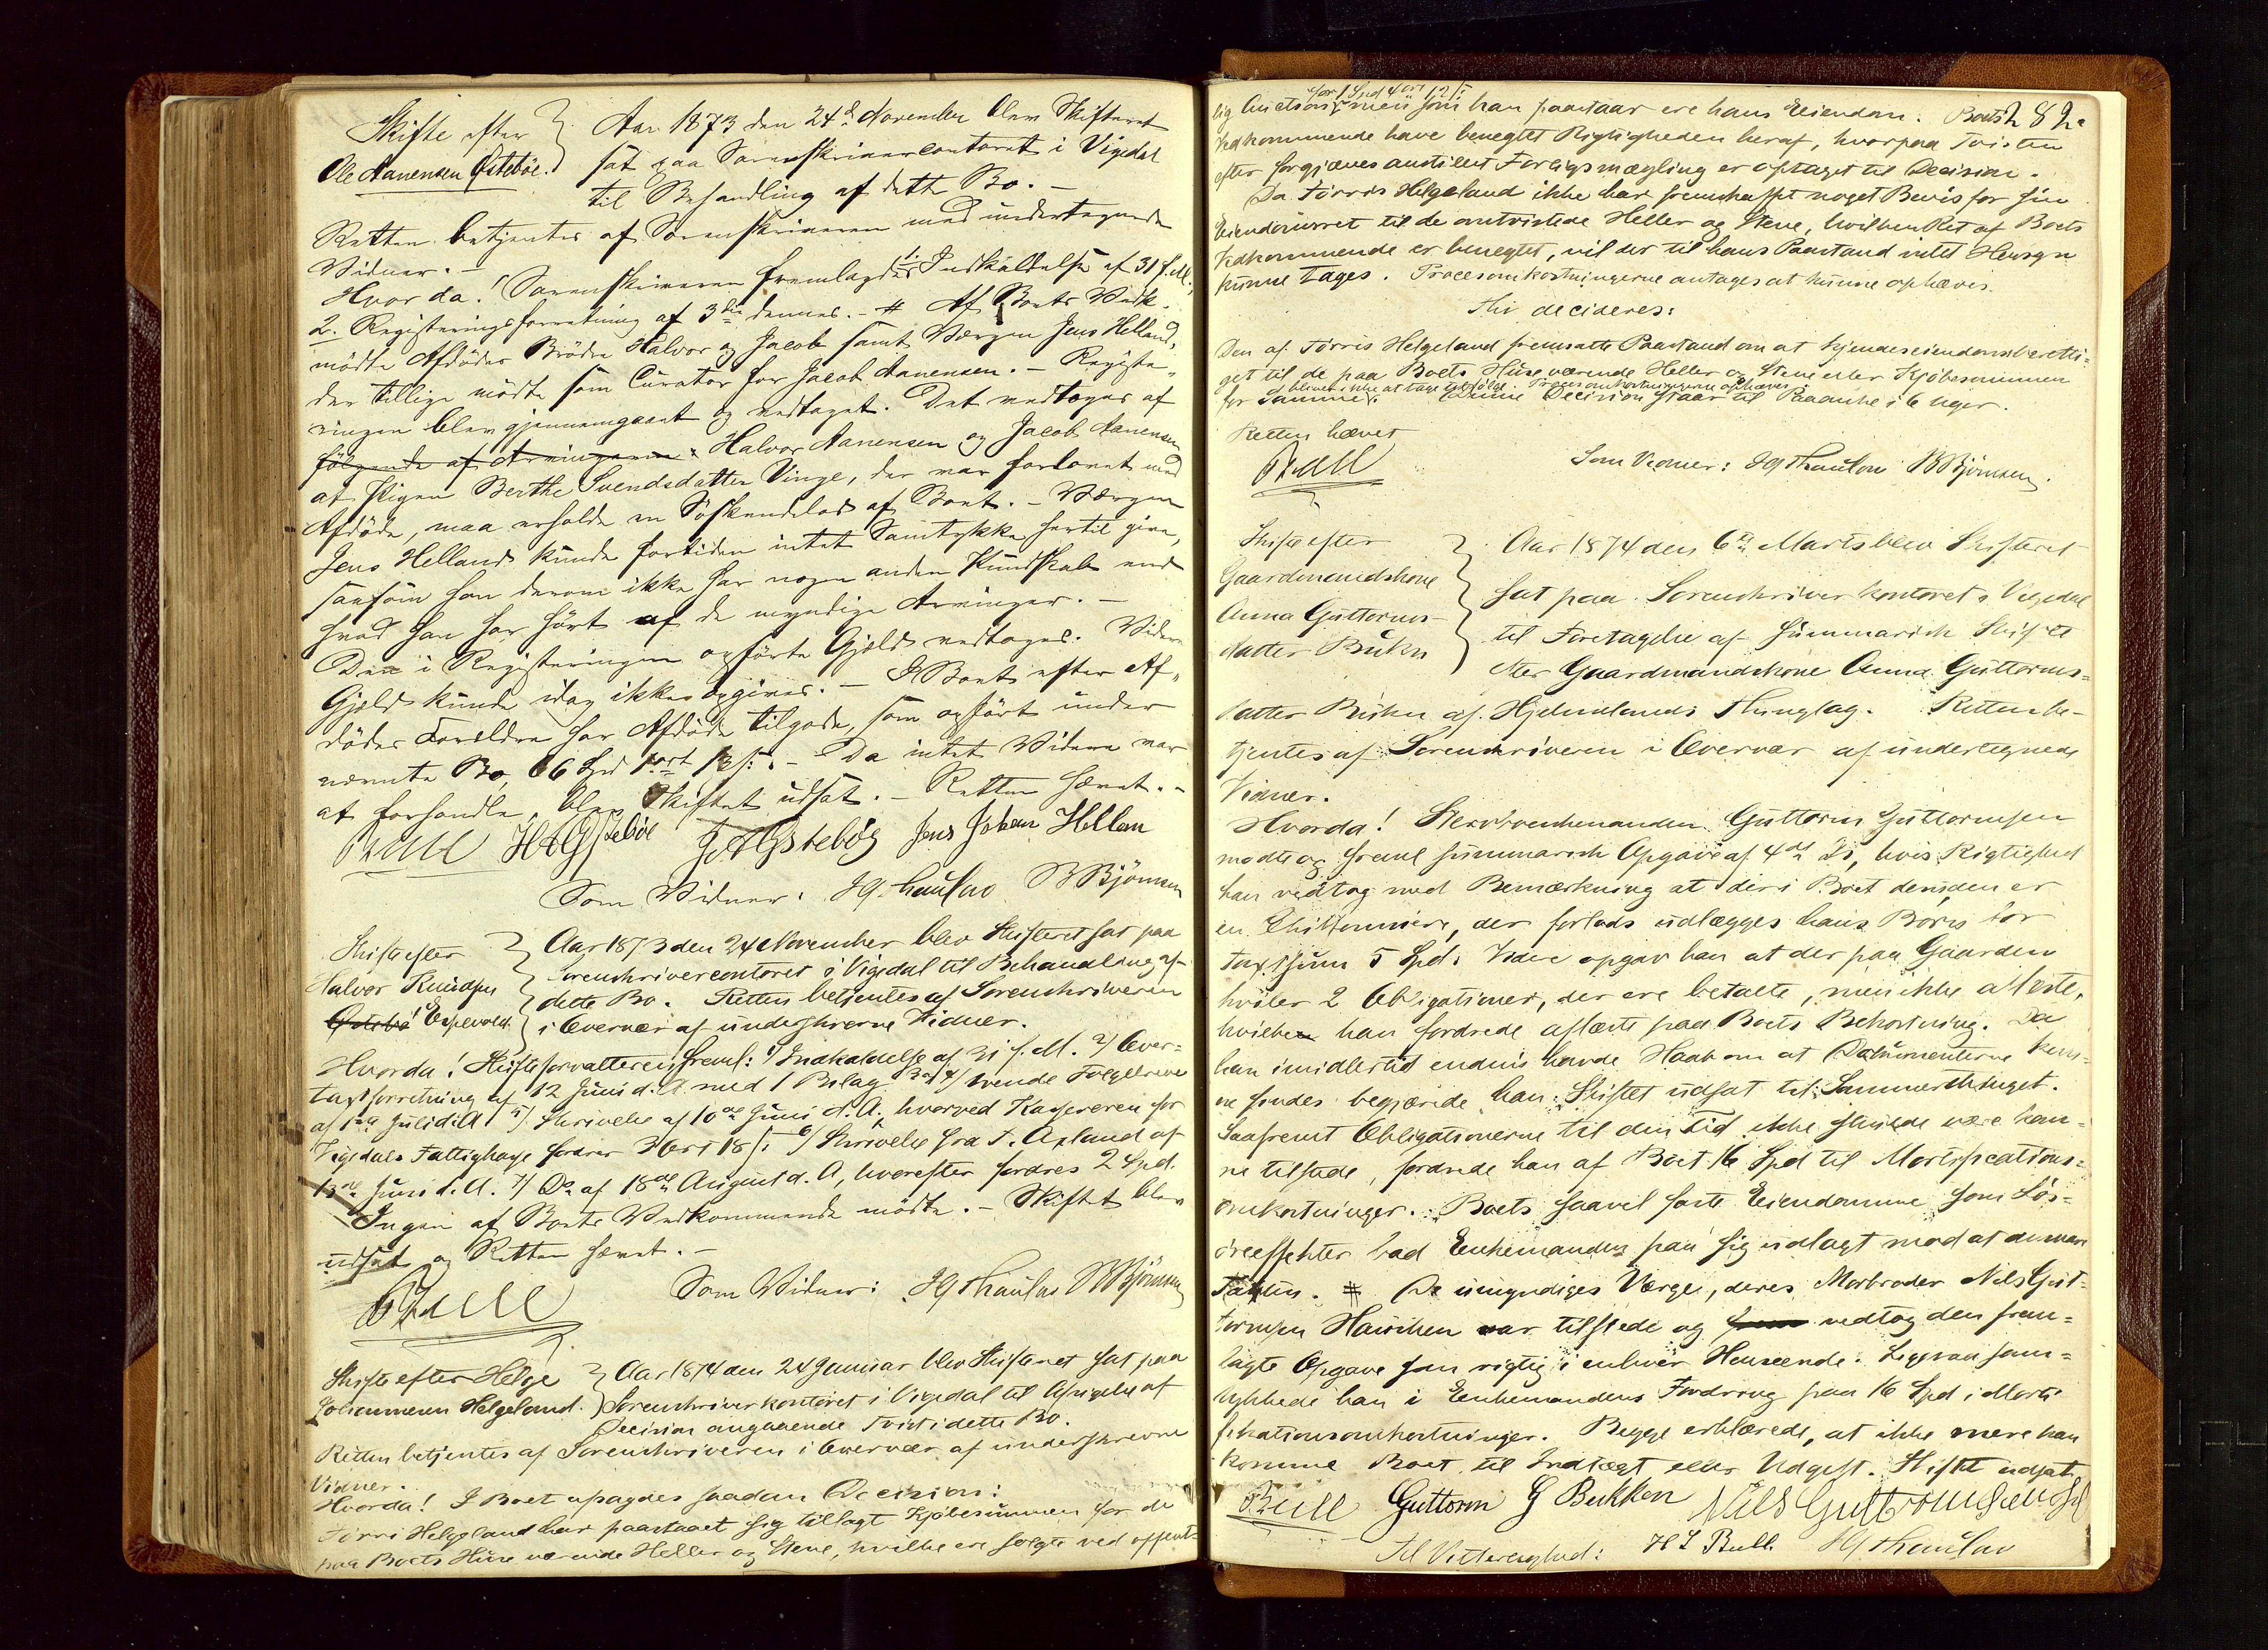 Skifte efter
Ole Aanensen Østebøe.
Aar 1873 den 24de November blev Skifteret
sat paa Sorenskrivercontoret i Vigedal
til Behandling af dette Bo. –
Retten betjentes af Sorenskriveren med undertegnede
Vidner. –
Hvorda! Sorenskriveren fremlagde 1. Indkaldelse af 31 f. M.,
2. Registeringsforretning af 3die dennes. – # Af Boets Vedk.
mødte Afdødes Brødre Halvor og Jacob samt Værgen Jens Helland,
der tillige mødte som Curator for Jacob Aanensen. – Registe-
ringen blev gjennemgaaet og vedtaget. Det vedtoges af
følgende af Arvingerne: Halvor Aanensen og Jacob Aanensen
at Pigen Berthe Svendsdatter Vinge, der var forlovet med
Afdøde, maa erholde en Søskendelod af Boet. – Værgen
Jens Helland kunde fortiden intet Samtykke hertil give,
saasom han derom ikke har nogen anden Kundskab end
hvad han har hørt af de myndige Arvinger. –
Den i Registeringen opførte Gjæld vedtoges. Videre
Gjæld kunde idag ikke opgives. – I Boet efter Af-
dødes Forældre har Afdøde tilgode, som opført under
nævnte Bo, 66 Spd 1 ort 13 s. – Da intet Videre var
at forhandle, blev Skiftet udsat. – Retten hævet. –
Bull H A Østebøe J A Østebøg Jens Johan Hellan
Som Vidner: Hg. Thaulow B Bjørnsen
Skifte efter
Halvor Knudsen
Østebø Espevold.
Aar 1873 den 24 November blev Skifteret sat paa
Sorenskrivercontoret i Vigedal til Behandling af
dette Bo. Retten betjentes af Sorenskriveren
i Overvær af underskrevne Vidner.
Hvorda! Skifteforvalteren freml: 1) Indkaldelse af 31 f. M. 2) Over-
taxtforretning af 12 Juni d. A med 1 Bilag 3 og 4) tvende Følgebreve
af 1ste Juli d. A 5) Skrivelse af 10de Juni d. A. hvorved Kassereren for
Vigedals Fattigkasse fordrer 3 Ort 18 s. 6) Skrivelse fra T. Apland af
13de Juni d. A. 7) Do af 18de August d. A, hvorefter fordres 2 Spd.
Ingen af Boets Vedkommende mødte. – Skiftet blev
udsat og Retten hævet. –
Bull
Som Vidner: Hg Thaulow B Bjørnsen
Skifte efter Helge
Johannesen Helgeland.
Aar 1874 den 24 Januar blev Skifteret sat paa
Sorenskriverkontoret i Vigedal til Afsigelse af
Decision angaaende Tvist i dette Bo.
Retten betjentes af Sorenskriveren i Overvær af underskrevne
Vidner.
Hvorda! I Boet afsagdes saadan Decision:
Tørris Helgeland har paastaaet sig tillagt Kjøbesummen for de
paa Boets Huse værende Heller og Stene, hvilke ere solgte ved offent-
282.
lig Auction for 1 Spd 4 ort 12 s. men som han paastaar ere hans Eiendom. Boets
Vedkommende have benegtet Rigtigheden heraf, hvorpaa Tvisten
efter forgjæves anstillet Forligsmægling er optaget til Decision.
Da Tørris Helgeland ikke har fremskaffet noget Bevis for sin
Eiendomsret til de omtvistede Heller og Stene, hvilken Ret af Boets
Vedkommende er benegtet, vil der til hans Paastand intet Hensyn
kunne tages. Procesomkostningerne antages at kunne ophæves.
Thi decideres:
Den af Tørris Helgeland fremsatte Paastand om at kjendes eiendomsberetti-
get til de paa Boets Huse værende Heller og Stene eller Kjøbesummen
for Samme, bliver ikke at tage tilfølge. Procesomkostningerne ophæves.
Denne Decision staar til Paaanke i 6 Uger.
Retten hævet
Bull
Som Vidner: Hg Thaulow B Bjørnsen.
Skifte efter
Gaardmandskone
Anna Guttorms-
datter Bukn
Aar 1874 den 6te Marts blev Skifteret
sat paa Sorenskriverkontoret i Vigedal
til Foretagelse af summarisk Skifte
efter Gaardmandskone Anna Guttorms-
datter Bukn af Hjelmelands Thinglag. Retten be-
tjentes af Sorenskriveren i Overvær af undertegnede
Vidner.
Hvorda! Stervboenkemanden Guttorm Guttormsen
mødte og freml summarisk Opgave af 4de ds, hvis Rigtighed
han vedtog med Bemærkning at der i Boet desuden er
en Chiffonniere, der forlods udlægges hans Børn for
Taxtsum 5 Spd. Videre opgav han at der paa Gaarden
hviler 2 Obligationer, der ere betalte, men ikke aflæste,
hvilke han fordrede aflæste paa Boets Bekostning. Da
han imidlertid endnu havde Haab om at Dokumenterne kun-
ne findes begjærede han Skiftet udsat til Sommerthinget.
Saafremt Obligationerne til den Tid ikke skulde være kom-
ne tilstede, fordrede han af Boet 16 Spd til Mortifications-
omkostninger. Boets saavel faste Eiendomme som Løs-
øreeffekter bad Enkemanden paa sig udlagt mod at
. # De umyndiges Værge, deres Morbroder Nils Gut-
tormsen Hausken var tilstede og vedtog den frem-
lagte Opgave som rigtig i enhver Henseende. Ligesaa sam-
tykkede han i Enkemandens Fordring paa 16 Spd i Morti-
fikationsomkostninger. Begge erklærede, at ikke mere kan
komme Boet til Indtægt eller Udgift. Skiftet udsat.
Bull Guttorm G Bukken Nils Guttormsen
Til Vitterlighed: H L Bull. Hg Thaulow